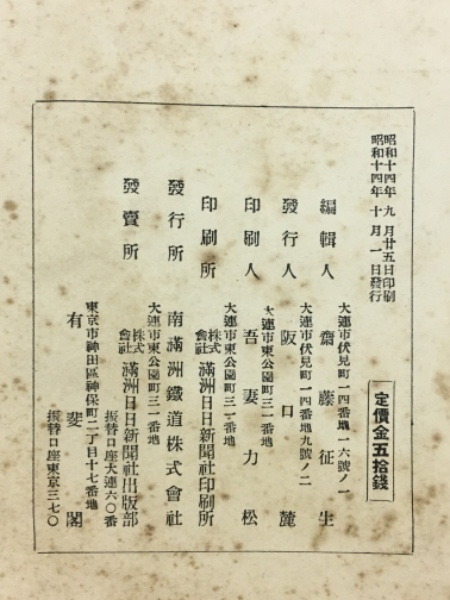 昭和十四年九月廿五日印刷
昭和十四年十月一日發行
定價金五拾錢
大連市伏見町一四番地一六號ノ一
編輯人 齋藤征生
大連市伏見町一四番地九號ノ二
發行人 阪口麓
大連市東公園町三一番地
印刷人 吾妻力松
大連市東公園町三一番地
印刷所 株式會社 滿洲日日新聞社印刷所
發行所 南滿洲鐵道株式會社
大連市東公園町三一番地
發賣所 株式會社 滿洲日日新聞社出版部
振替口座大連六〇番
東京市神田區神保町二丁目十七番地
有斐閣
振替口座東京三七〇